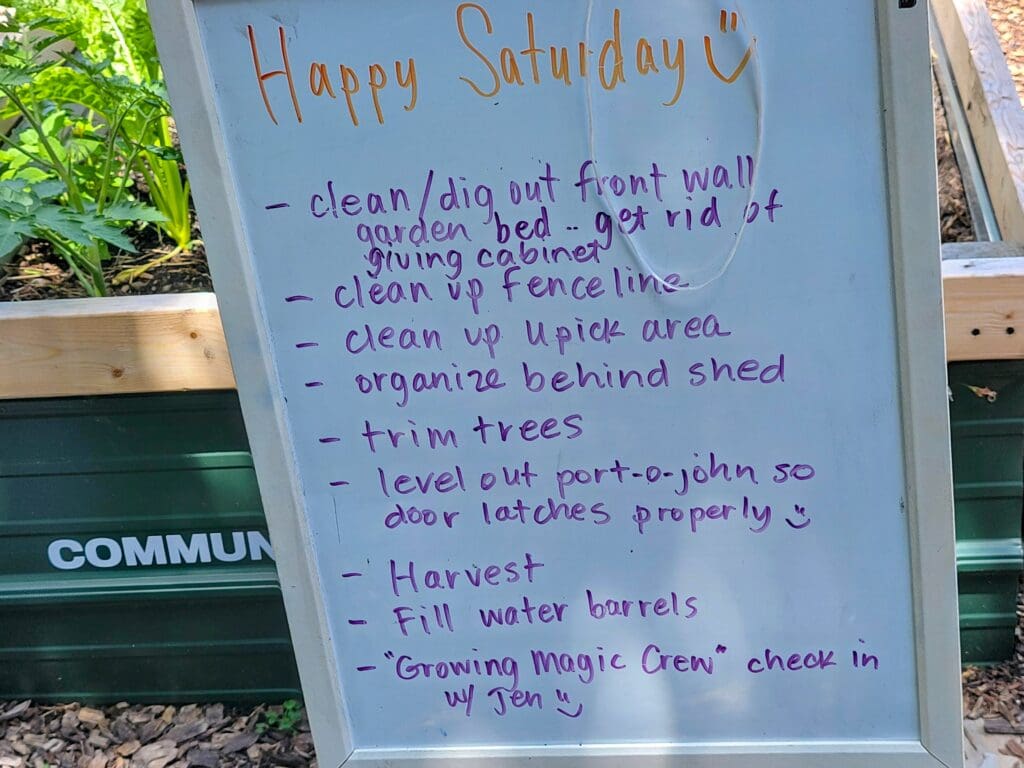 Happy Saturday
- clean/dig out front wall
garden bed -- get rid of
giving cabinet
- clean up fence line
- clean up Upick area
- organize behind shed
- trim trees
- level out port-o-john so
door latches properly
- Harvest
- Fill water barrels
- "Growing Magic Crew" check in
w/ Jen
COMMUN